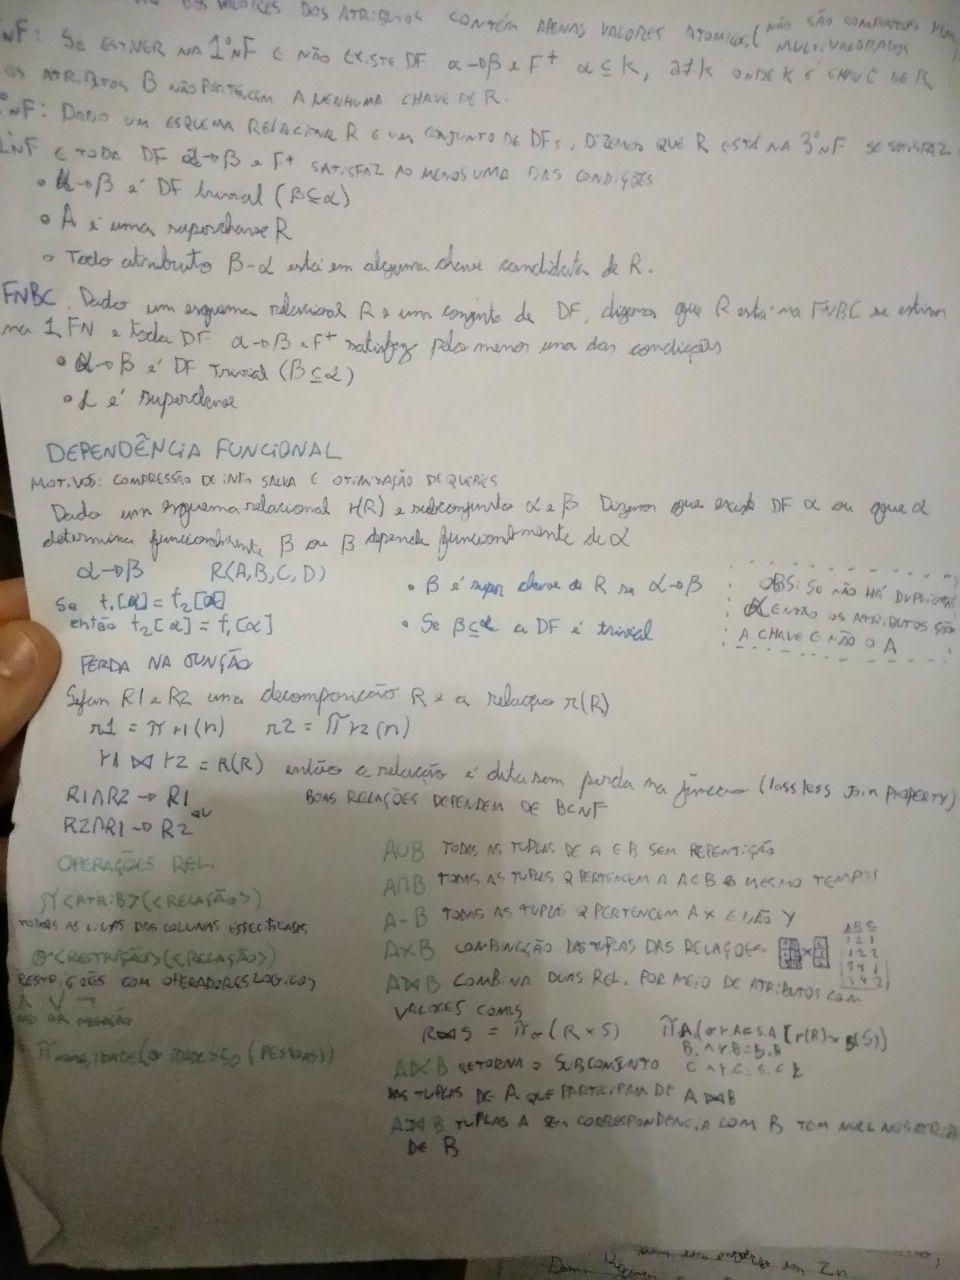 DOS VALORES DOS ATRIBUTOS CONTÉM APENAS VALORES ATOMICOS (NÃO SÃO COMPOSTOS NEM
MULTIVALORADOS
NF: SE ESTIVER NA 1°NF E NÃO EXISTE DF α→β ∈ F+ α ⊆ K, α≠K ONDE K É CHAVE DE R
OS ATRIBUTOS B NÃO PERTECEM A NENHUMA CHAVE DE R.
°NF: DADO UM ESQUEMA RELACIONAL R E UM CONJUNTO DE DFs, DIZEMOS QUE R ESTÁ NA 3°NF SE SATISFAZ
1°NF E TODA DF α→β ∈ F+ SATISFAZ AO MENOS UMA DAS CONDIÇÕES
• α→β é DF trivial (β⊆α)
• A é uma superchave R
• Todo atributo β-α está em alguma chave candidata de R.
FNBC: Dado um esquema relacional R e um conjunto de DF, dizemos que R está na FNBC se estiver
na 1FN e toda DF α→β ∈ F+ satisfaz pelo menos uma das condições
• α→β é DF Trivial (β⊆α)
• α é superchave
DEPENDÊNCIA FUNCIONAL
MOTIVOS: COMPRESSÃO DE INFO SALVA E OTIMIZAÇÃO DE QUERIES
Dado um esquema relacional r(R) e subconjunto α e β. Dizemos que existe DF α ou que α
determina funcionalmente β ou β depende funcionalmente de α
α→β R(A,B,C,D)
Se t₁[α] = t₂[α]
então t₂[α] = t₁[α]
• B é super chave de R se α→β
• Se β⊆α a DF é trivial
OBS: SE NÃO HÁ DUPLICATAS
α ENTÃO OS ATRIBUTOS SÃO
A CHAVE E NÃO O A
PERDA NA JUNÇÃO
Sejam R1 e R2 uma decomposição R e a relação r(R)
r1 = π r1(r) r2 = π r2(r)
r1 ⋈ r2 = R(R) então a relação é dita sem perda na junção (lossless JOIN PROPERTY)
R1∩R2 → R1
ou
R2∩R1 → R2
BOAS RELAÇÕES DEPENDEM DE BCNF
OPERAÇÕES REL.
π<ATRIB>(<RELAÇÃO>)
TODAS AS LINHAS DAS COLUNAS ESPECIFICADAS
σ<RESTRIÇÃO>(<RELAÇÃO>)
RESTRIÇÕES COM OPERADORES LOGICOS
∧ ∨ ¬
AND OR NEGAÇÃO
π NOME, IDADE (σ IDADE>50 (PESSOAS))
A∪B TODAS AS TUPLAS DE A E B SEM REPENTIÇÃO
A∩B TODAS AS TUPLAS Q PERTENCEM A A E B AO MESMO TEMPO
A-B TODAS AS TUPLAS Q PERTENCEM A X E NÃO Y
A×B COMBINAÇÃO DAS TUPLAS DAS RELAÇÕES
A B C
1 2 1
1 2 2
3 4 1
3 4 2
A⋈B COMBINA DUAS REL. POR MEIO DE ATRIBUTOS COM
VALORES COMUNS
R⋈S = π σ (R × S)
A⋉B RETORNA O SUBCONJUNTO
DAS TUPLAS DE A QUE PARTICIPAM DE A⋈B
A⟕B TUPLAS A SEM CORRESPONDENCIA COM B TEM NULL NOS ATRIB
DE B